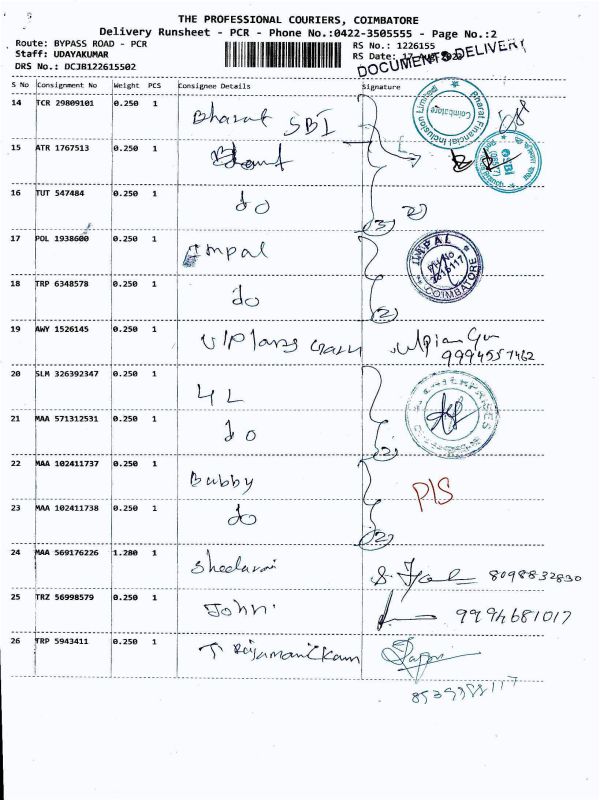 THE PROFESSIONAL COURIERS, COIMBATORE
Delivery Runsheet - PCR - Phone No.:0422-3505555 - Page No.:2
Route: BYPASS ROAD - PCR
RS No.: 1226155
Staff: UDAYAKUMAR
RS Date: 17
DRS No.: DCJB122615502
DOCUMENTS DELIVERY
S No Consignment No Weight PCS Consignee Details Signature
14 TCR 29809101 0.250 1 Bharat SBI
Bharat Financial Inclusion Limited Coimbatore
15 ATR 1767513 0.250 1
SBI
16 TUT 547484 0.250 1 do (3)
17 POL 1938600 0.250 1 Impal
IMPAL COIMBATORE
18 TRP 6348578 0.250 1 do (2)
19 AWY 1526145 0.250 1
9994557462
20 SLM 326392347 0.250 1 4 L
21 MAA 571312531 0.250 1 do (2)
22 MAA 102411737 0.250 1 Bubby
P/S
23 MAA 102411738 0.250 1 do (2)
24 MAA 569176226 1.280 1 8098832830
25 TRZ 56998579 0.250 1 John. 9994681017
26 TRP 5943411 0.250 1 T. Rajamanickam